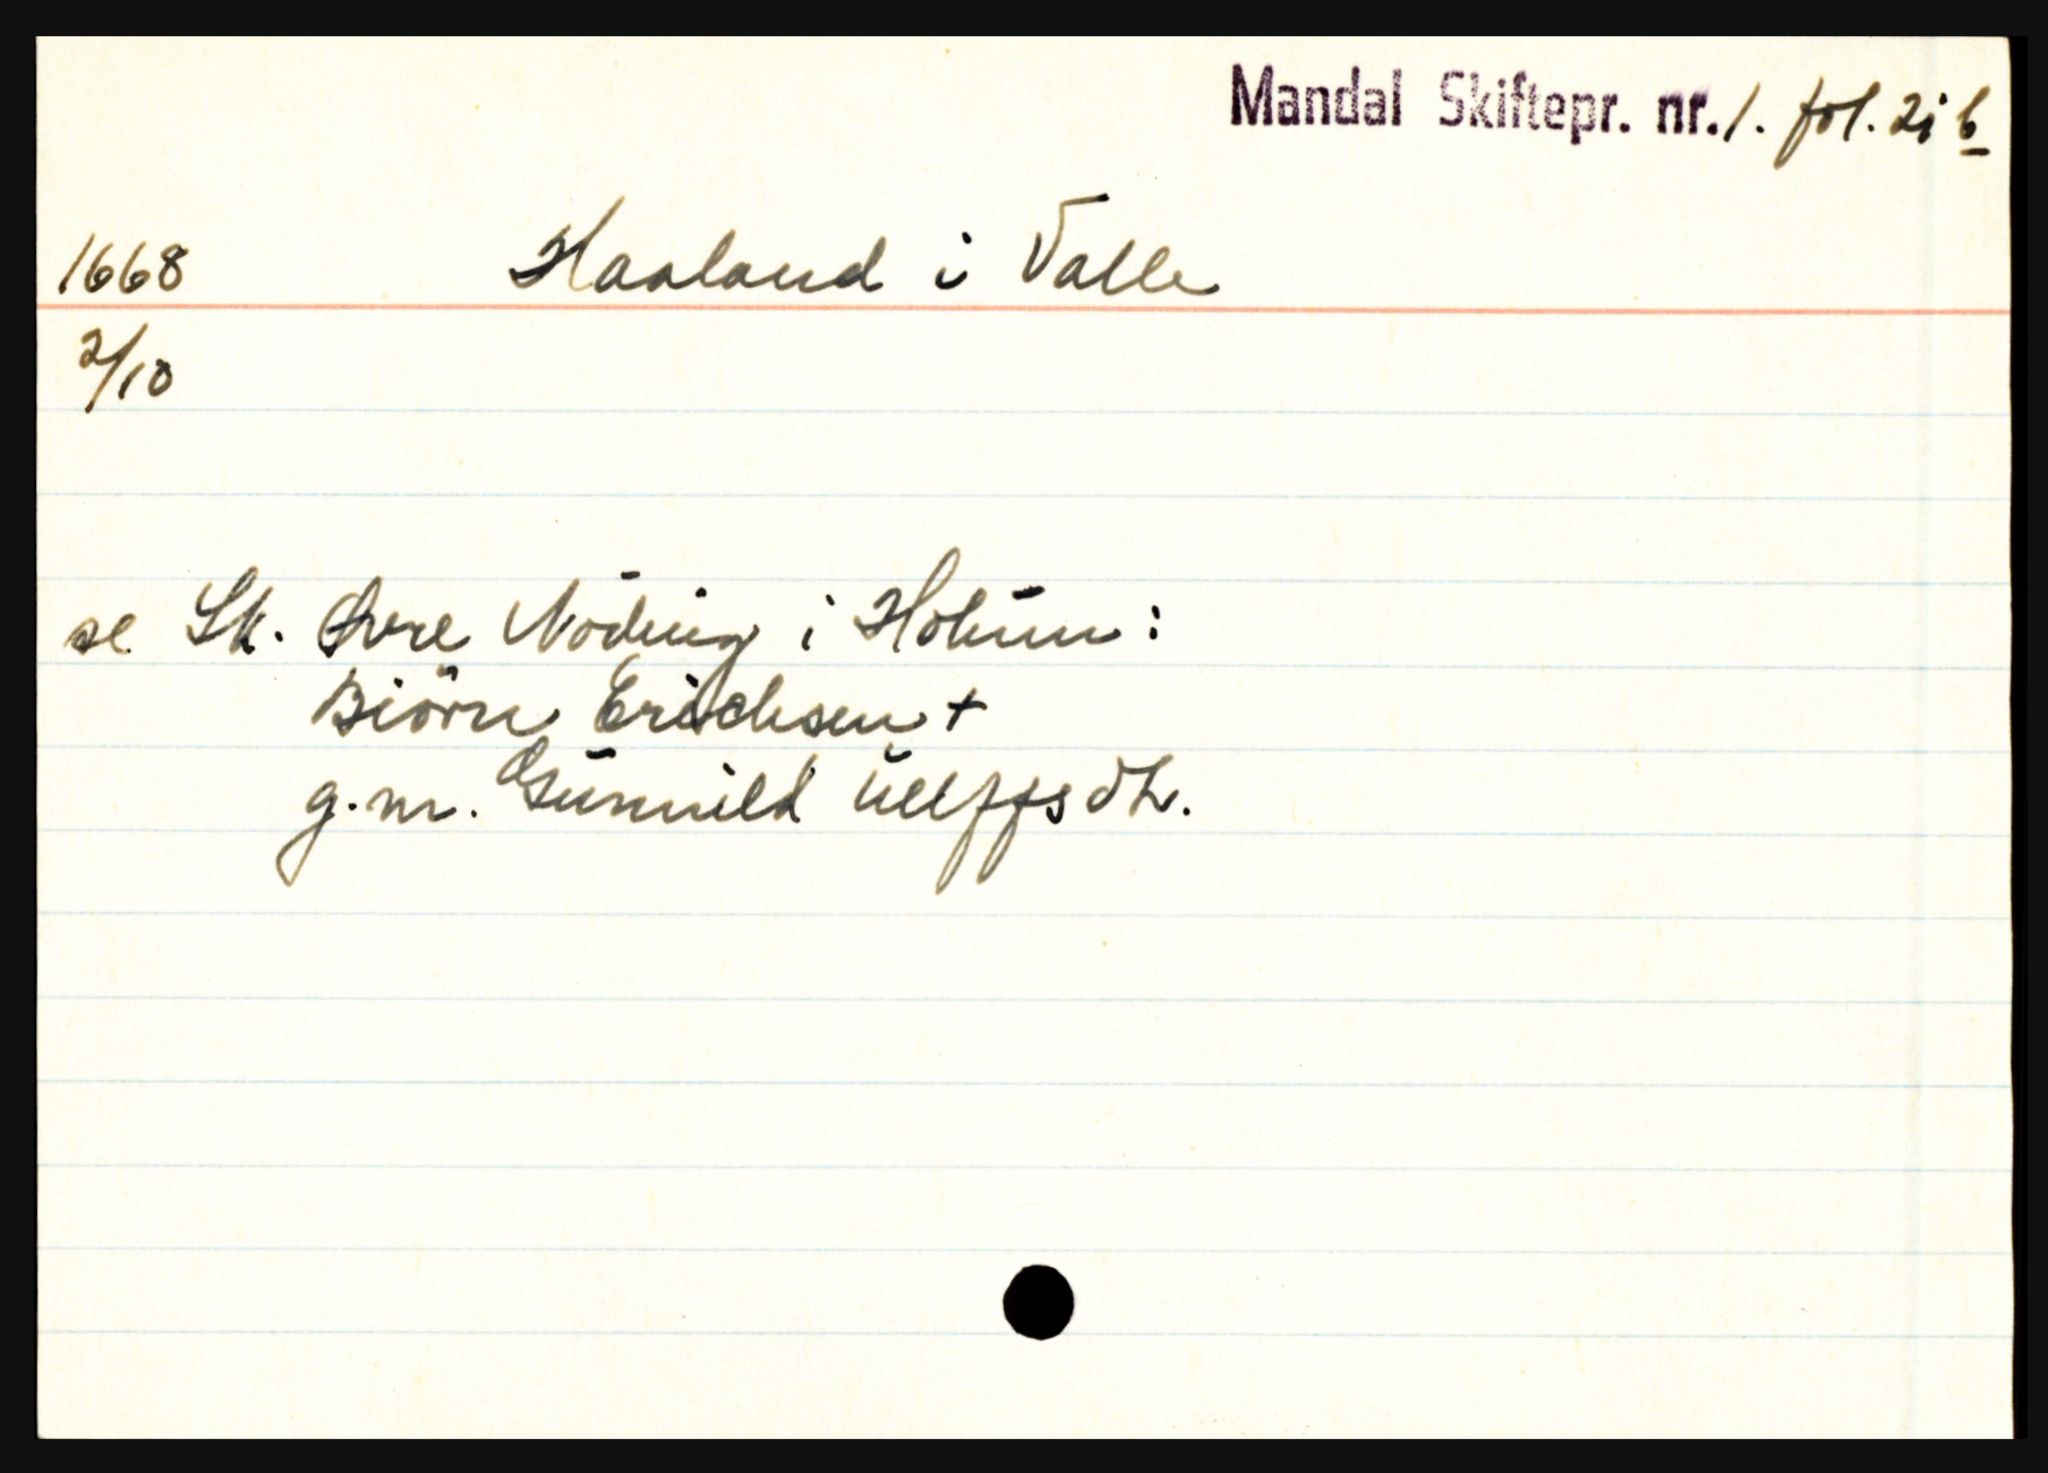 Mandal Skiftepr. nr. 1. fol. 21 b
1668 Haaland i Valle
2/10
se Sk. Øvre Nöding i Holum:
Biörn Erichsen +
g.m. Gunnild Ullffsdt.